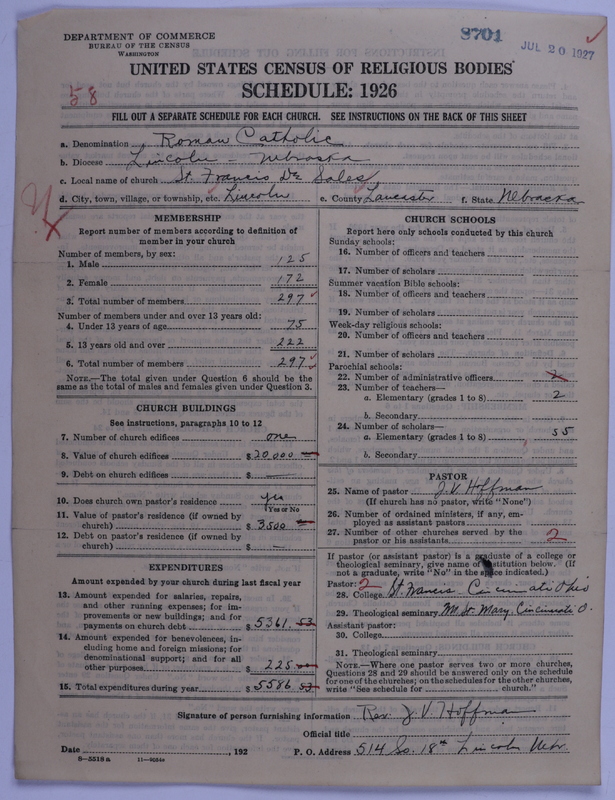 DEPARTMENT OF COMMERCE
BUREAU OF THE CENSUS
WASHINGTON
8701
JUL 20 1927
UNITED STATES CENSUS OF RELIGIOUS BODIES
SCHEDULE: 1926
58
FILL OUT A SEPARATE SCHEDULE FOR EACH CHURCH. SEE INSTRUCTIONS ON THE BACK OF THIS SHEET
a. Denomination Roman Catholic
b. Diocese Lincoln - Nebraska
c. Local name of church St. Francis De Sales
d. City, town, village, or township, etc. Lincoln e. County Lancaster f. State Nebraska
MEMBERSHIP
Report number of members according to definition of member in your church
Number of members, by sex:
1. Male 125
2. Female 172
3. Total number of members 297
Number of members under and over 13 years old:
4. Under 13 years of age 75
5. 13 years old and over 222
6. Total number of members 297
NOTE.—The total given under Question 6 should be
same as the total of males and females given under Question 3.
CHURCH BUILDINGS
See instructions, paragraphs 10 to 12
7. Number of church edifices one
8. Value of church edifices $ 20000
9. Debt on church edifices $ —
10. Does church own pastor's residence yes
Yes or No
11. Value of pastor's residence (if owned by
church) $ 3500
12. Debt on pastor's residence (if owned by
church) $ —
EXPENDITURES
Amount expended by your church during last fiscal year
13. Amount expended for salaries, repairs,
and other running expenses; for im-
provements or new buildings; and for
payments on church debt $ 5361.53
14. Amount expended for benevolences, in-
cluding home and foreign missions; for
denominational support; and for all
other purposes $ 225
15. Total expenditures during year $ 5586 53
CHURCH SCHOOLS
Report here only schools conducted by this church
Sunday schools:
16. Number of officers and teachers
17. Number of scholars
Summer vacation Bible schools:
18. Number of officers and teachers
19. Number of scholars
Week-day religious schools:
20. Number of officers and teachers
21. Number of scholars
Parochial schools:
22. Number of administrative officers
23. Number of teachers—
a. Elementary (grades 1 to 8) 2
b. Secondary
24. Number of scholars—
a. Elementary (grades 1 to 8) 55
b. Secondary
PASTOR
25. Name of pastor J. V. Hoffman
(If church has no pastor, write "None")
26. Number of ordained ministers, if any, em-
ployed as assistant pastors
27. Number of other churches served by the
pastor or his assistants 2
If pastor (or assistant pastor) is a graduate of a college or
theological seminary, give name of institution below. (If
not a graduate, write "No" in the space indicated.)
Pastor: 2
28. College St. Francis Cincinnati Ohio
29. Theological seminary Mt. St. Mary, Cincinnati O.
Assistant pastor:
30. College
31. Theological seminary
NOTE.—Where one pastor serves two or more churches,
Questions 28 and 29 should be answered only on the schedule
for one of the churches; on the schedules for the other churches,
write "See schedule for church."
Signature of person furnishing information Rev. J. V. Hoffman
Official title
Date , 192 P. O. Address 514 So. 18th Lincoln Nebr.
8—5518 a 11—9084a